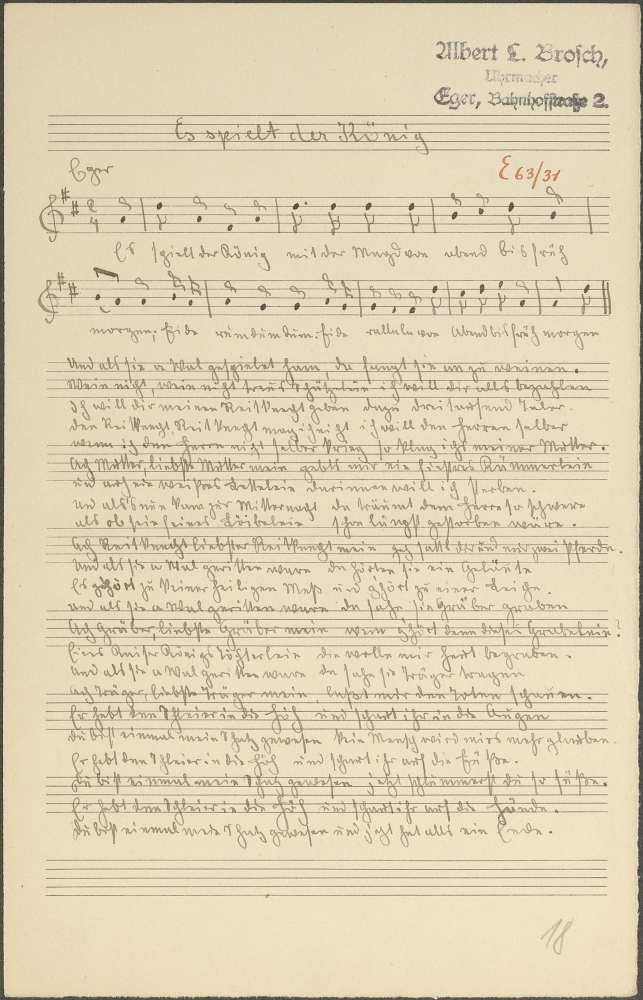 Albert L. Brosch,
Uhrmacher
Eger, Bahnhofstraße 2.
Es spielt der König
Eger
E 63/31
2
4
Es spielt der König mit der Magd von abend bis früh
morgen, Eide rumdumdum. Eide rallala von Abend bis früh morgen
Und als sie a Wal gespielet ham, da fangt sie an zu weinen.
Wein nicht, wein nicht, traus Schätzelein ich will dir alls bezahlen
Ich will dir meinen Reitknecht geben dazu dreitausend Taler.
den Reitknecht, Reitknecht mag ich nicht ich will den Herren selber
wenn ich den Herrn nicht selber krieg so klag ichs meiner Mutter.
Ach Mutter, liebste Mutter mein gebts mir ein finstres Kämmerlein
und auch ein weißes Bettelein darinnen will ich sterben.
Und als es nun kam zur Mitternacht da träumt dem Herre so schwere
als ob sein feines Leibelein schon längst gestorben wäre.
Ach Reitknecht liebster Reitknecht mein geh sattl dir und mir zwei Pferde.
Und als sie a Wal geritten ware da hörten sie ein Geläute
Es ghört zu keiner heiligen Meß und ghört zu einer Leiche.
und als sie a Wal geritten ware da sahn sie Gräber graben
Ach Gräber, liebste Gräber mein wem ghört denn dieses Grabelein?
Eines Kaiser Königs Töchterlein die wolln wir heut begraben.
Und als sie a Wal geritten ware da sahn sie Träger tragen
Ach Träger, liebste Träger mein, laßt mir den Toten schauen.
Er hebt den Schleier in die Höh und schaut ihr in die Augen
du bist einmal mein Schatz gewesen kein Mensch wird mirs mehr glauben.
Er hebt den Schleier in die Höh und schaut ihr auf die Füße.
du bist einmal mein Schatz gewesen jetzt schlummerst du so süße.
Er hebt den Schleier in die Höh und schaut ihr auf die Hände.
du bist einmal mein Schatz gewesen und jetzt hat alls ein Ende.
18